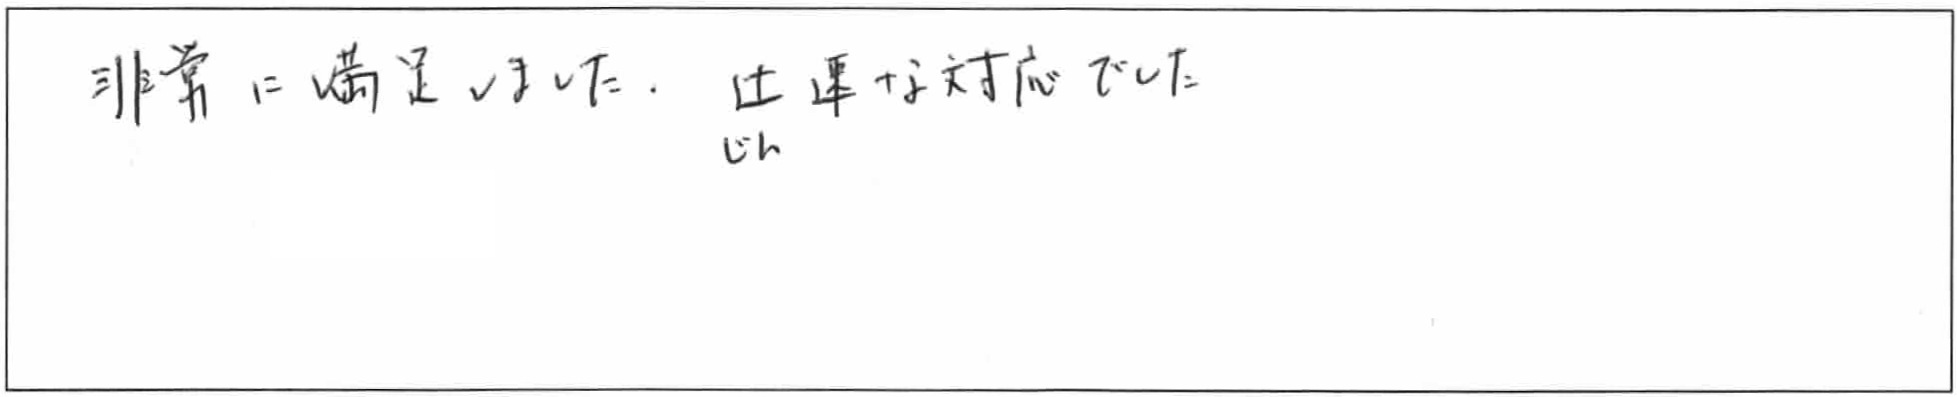 非常に満足しました. 迅速な対応でした
じん